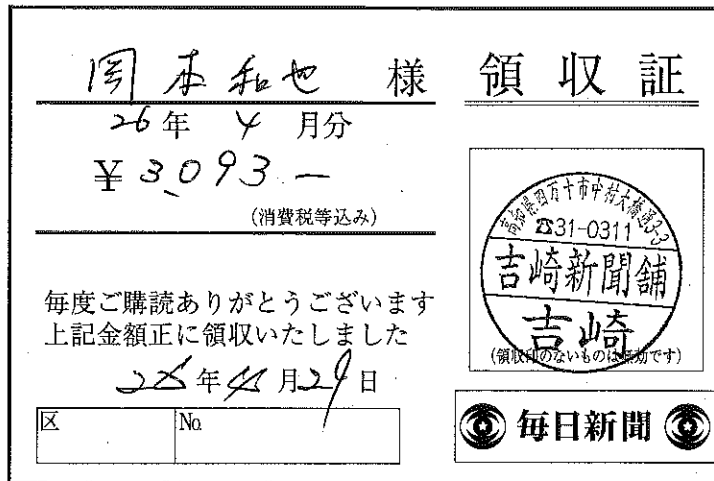 岡本和也 様
領収証
26年 4月分
¥3,093-
(消費税等込み)
毎度ご購読ありがとうございます
上記金額正に領収いたしました
年 月29日
区 No.
高知県四万十市中村大橋通3-3
☎31-0311
吉崎新聞舗
吉崎
(領収印のないものは無効です)
毎日新聞